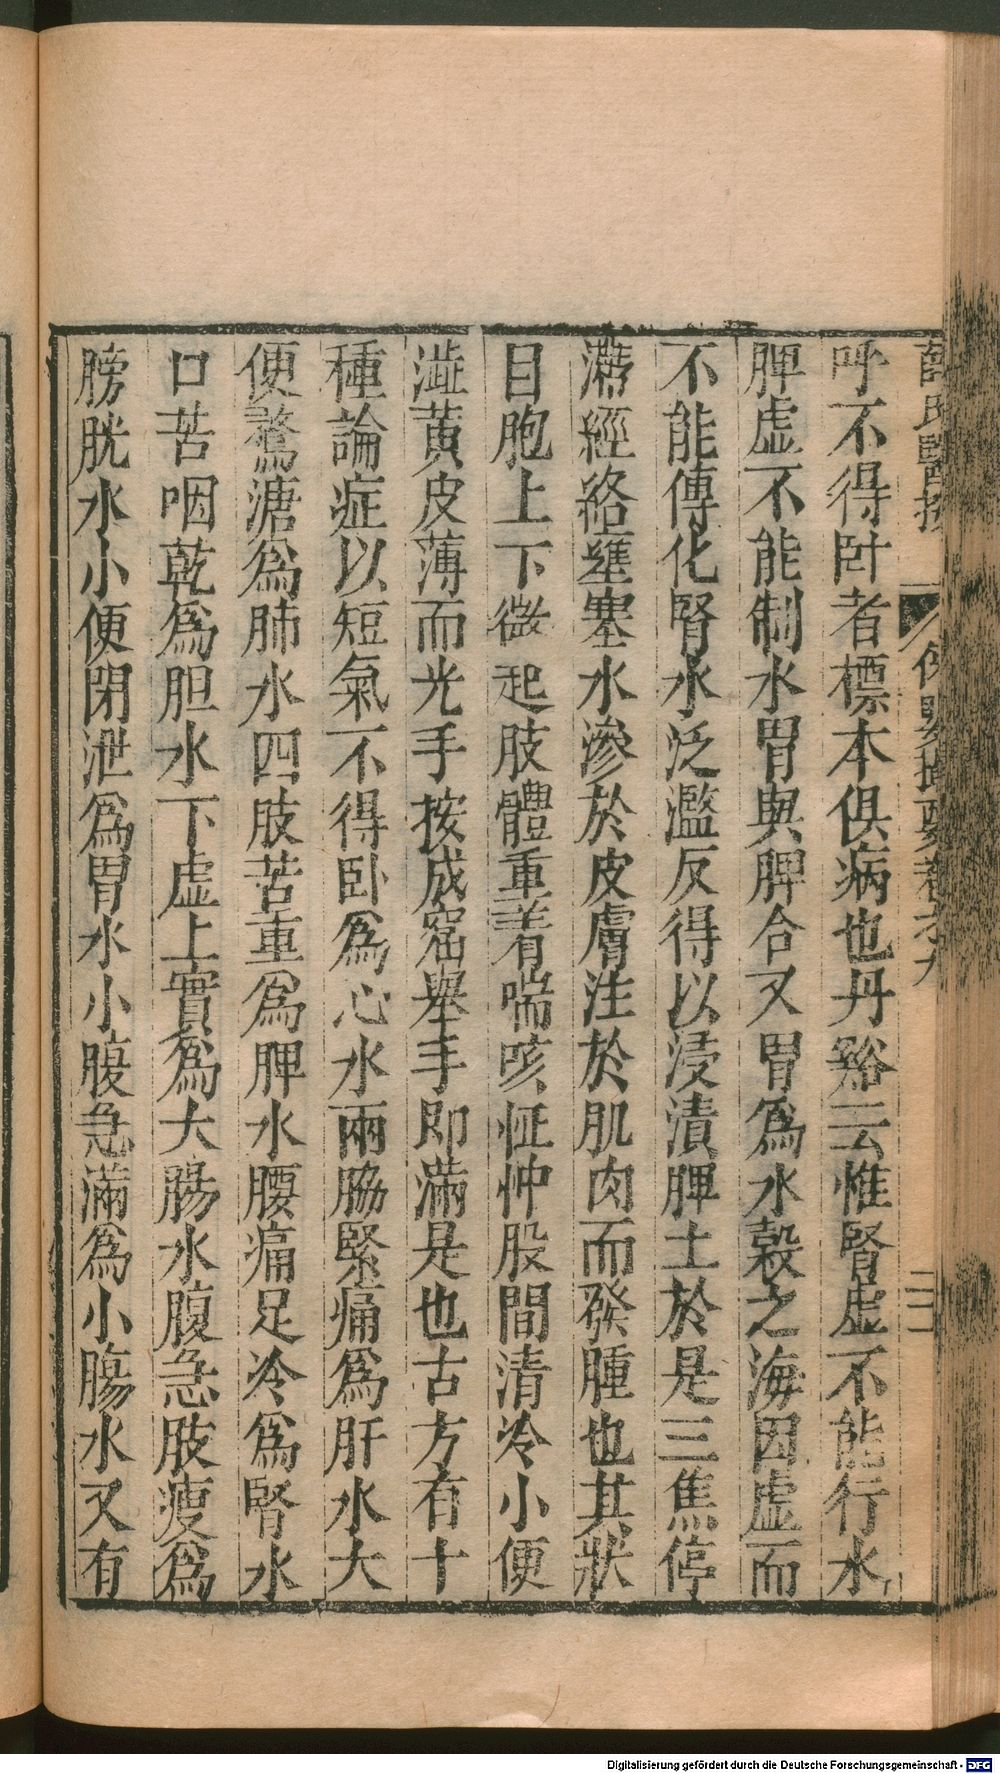 薛氏醫按 保嬰撮要卷九 二二
呼不得卧者標本俱病也丹谿云惟腎虛不能行水
脾虛不能制水胃與脾合又胃爲水穀之海因虛而
不能傳化腎水泛濫反得以浸漬脾土於是三焦停
滯經絡壅塞水滲於皮膚注於肌肉而發腫也其狀
目胞上下微起肢體重着喘咳怔忡股間清冷小便
澁黄皮薄而光手按成窟舉手即滿是也古方有十
種論症以短氣不得卧爲心水兩脇緊痛爲肝水大
便鶩溏爲肺水四肢苦重爲脾水腰痛足冷爲腎水
口苦咽乾爲胆水下虛上實爲大腸水腹急肢瘦爲
膀胱水小便閉泄爲胃水小腹急滿爲小腸水又有
Digitalisierung gefördert durch die Deutsche Forschungsgemeinschaft - DFG